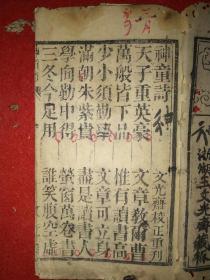 神童詩 文光齋校正重刊
天子重英豪 文章教爾曹
萬般皆下品 惟有讀書高
少小須勤學 文章可立身
滿朝朱紫貴 盡是讀書人
學向勤中得 螢窗萬卷書
三冬今足用 誰笑腹空虛